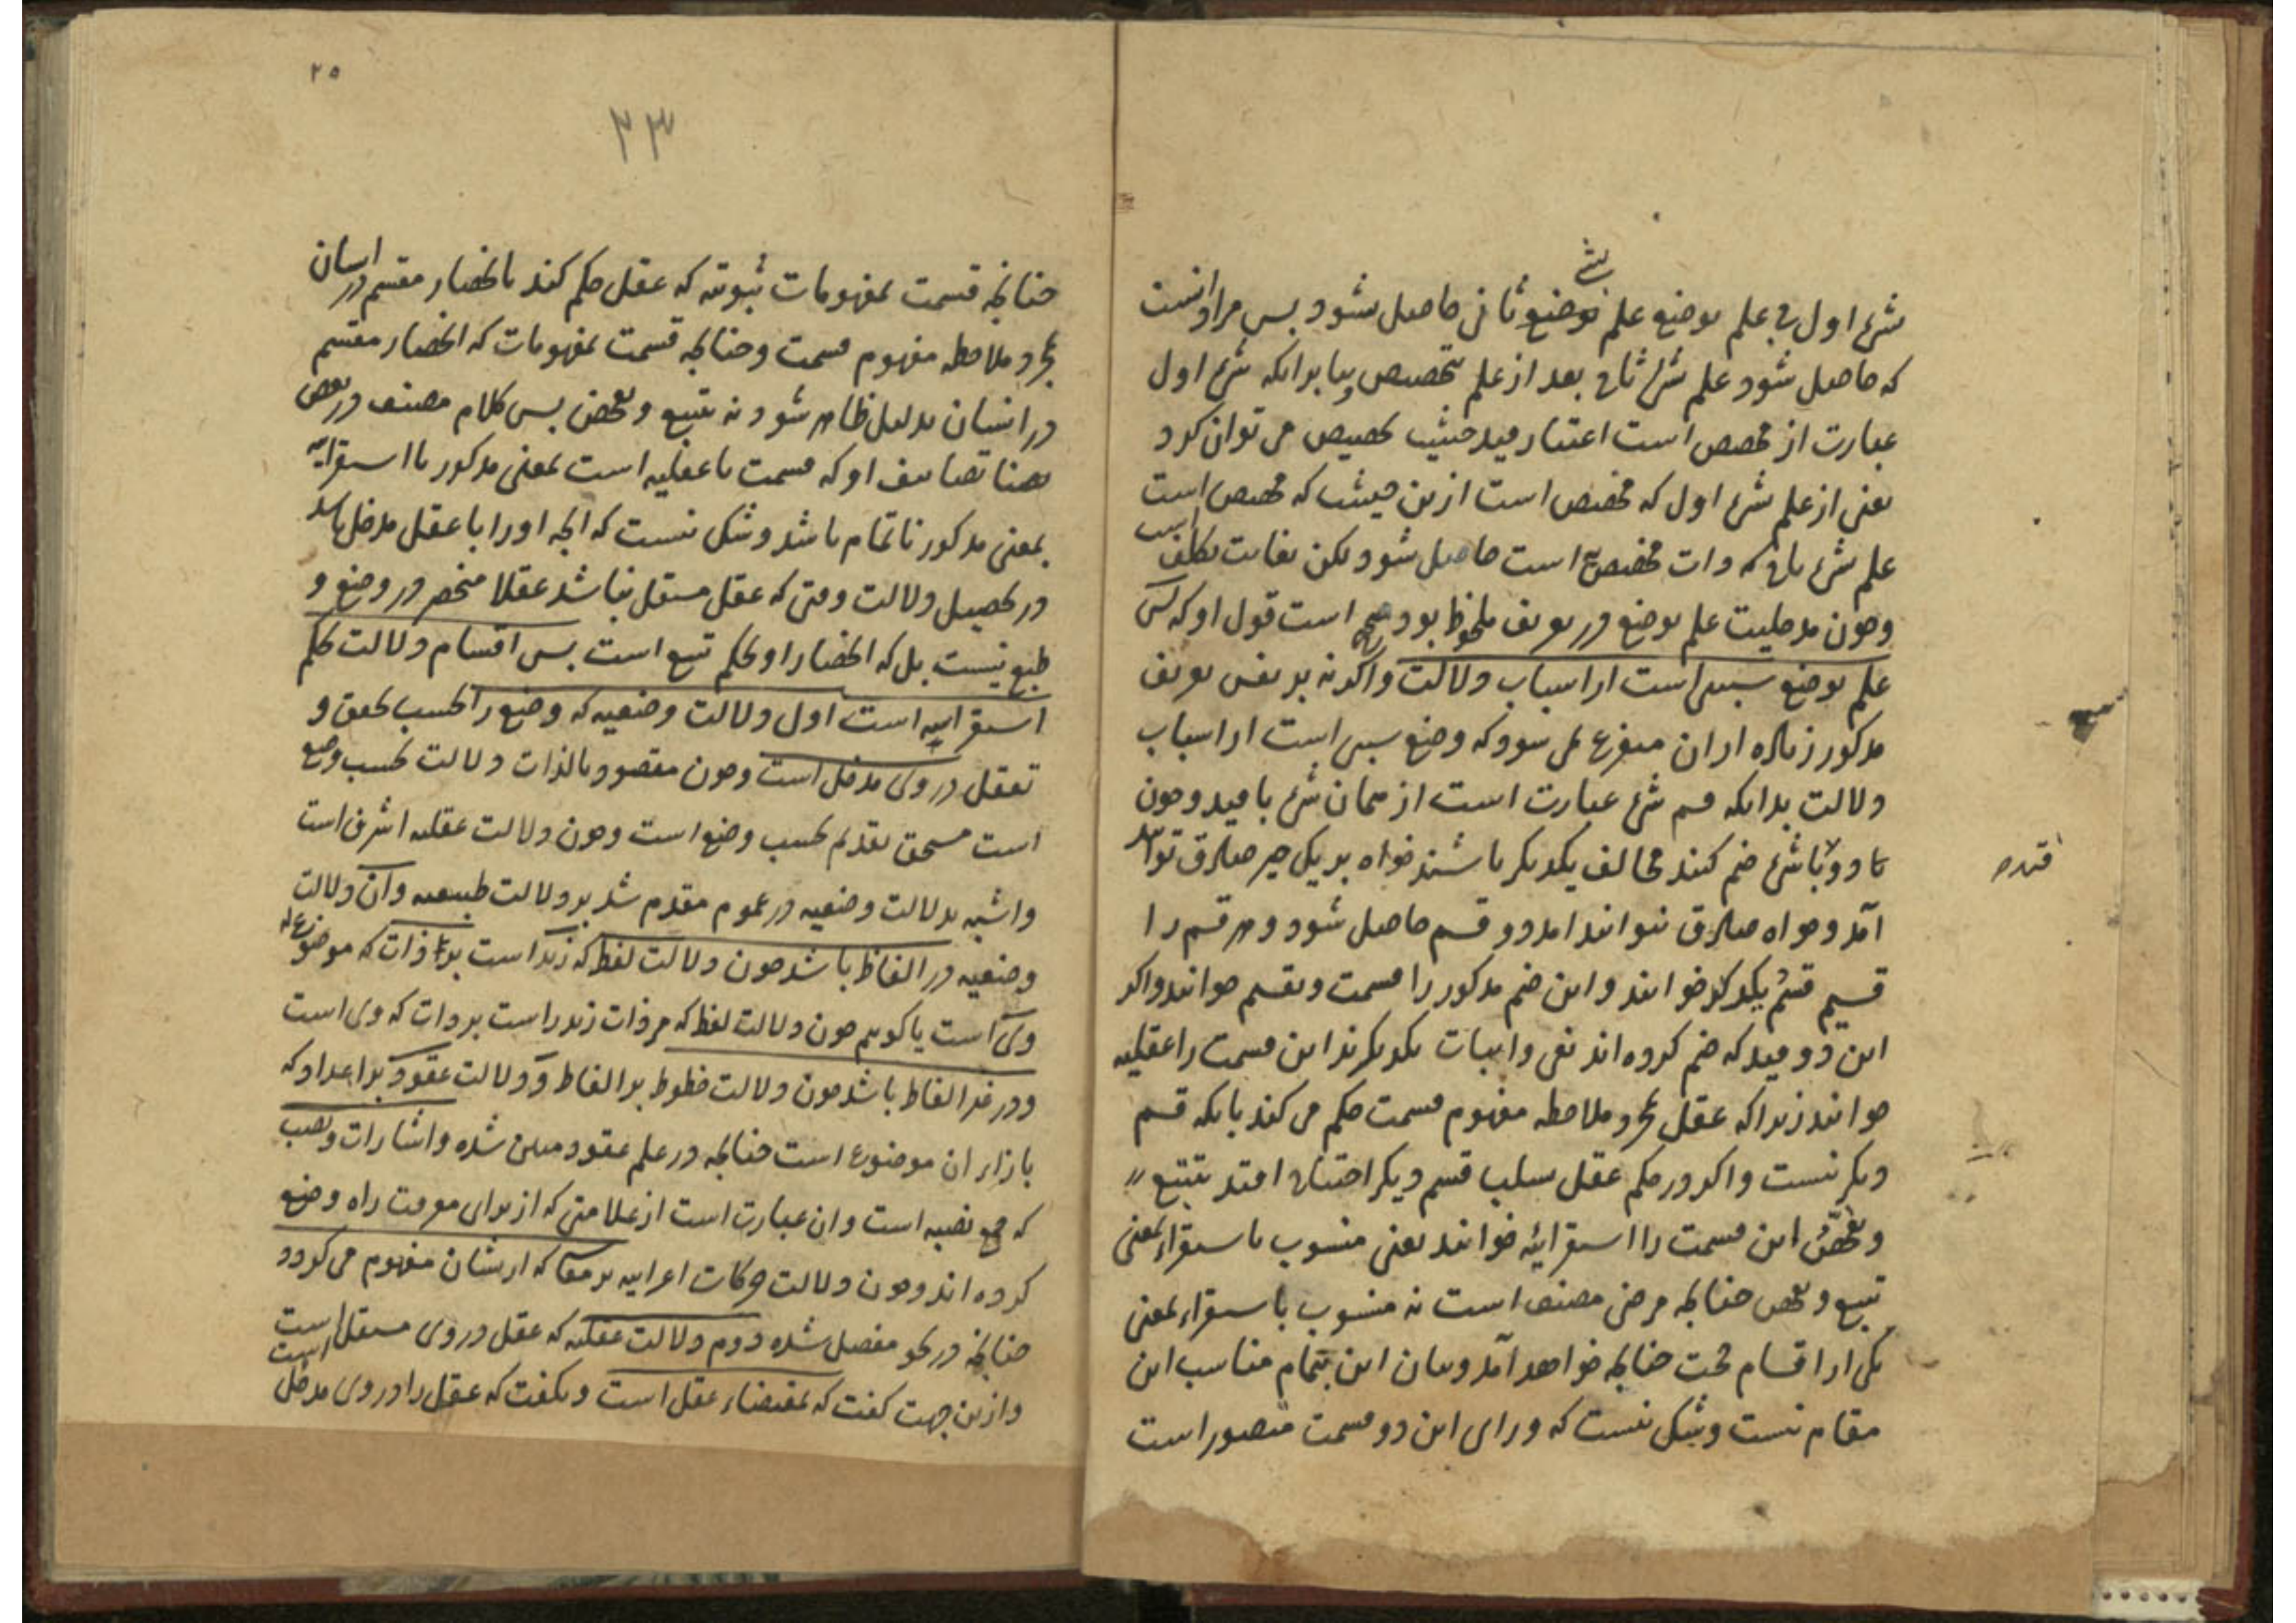 شیء اول فی علم بوضع علم بوضع ثانی حاصل شود پس مراد آنست
بشیء
که حاصل شود علم شیء ثانی بعد از علم بتخصیص و بنابرانکه شیء اول
عبارت از مخصص است اعتبار قید حیثیت تخصیص می توان کرد
یعنی از علم شیء اول که مخصص است ازین حیثیت که مخصص است
علم شیء ثانی که ذات مخصص است حاصل شود لکن بغایت تکلف است
و چون مدخلیت علم بوضع در تعریف ملحوظ بود صحیح است قول او که پس
علم بوضع سببی است از اسباب دلالت و اگر نه بر نفس تعریف
مذکور زیاده ازان متفرع نمی شود که وضع سببی است از اسباب
دلالت بدانکه قسم شیء عبارت است از همان شیء با قید و چون
تا دو با شیء ضم کنند مخالف یکدیگر باشند خواه بر یک چیز صادق تواند
آمد و خواه صادق نتوانند امد دو قسم حاصل شود و هر قسم را
قسیم قسم یکدیگر خوانند و این ضم مذکور را قسمت و تقسیم خوانند و اگر
این دو قید که ضم کرده اند نفی و اثبات یکدیگرند این قسمت را عقلیه
خوانند زیرا که عقل بمجرد ملاحظه مفهوم قسمت حکم می کند بانکه قسم
دیگر نیست و اگر در حکم عقل بسلب قسم دیگر احتیاج افتد بتتبع
و تفحص این قسمت را استقرائیه خوانند یعنی منسوب باستقراء بمعنی
تتبع و تفحص چنانچه مرضی مصنف است نه منسوب باستقراء بمعنی
یکی از اقسام حجت چنانچه خواهد آمد و بیان این بتمام مناسب این
مقام نیست و شکی نیست که ورای این دو قسمت متصور است
۲۵
۲۳
چنانچه قسمت مفهومات ثبوتیه که عقل حکم کند بانحصار مقسم در ایشان
بمجرد ملاحظه مفهوم قسمت و چنانچه قسمت مفهومات که انحصار مقسم
در ایشان بدلیل ظاهر شود نه بتتبع و تفحص پس کلام مصنف در بعض
تصانیف او که قسمت یا عقلیه است بمعنی مذکور یا استقرائیه
بمعنی مذکور ناتمام باشد و شکی نیست که انچه او را با عقل مدخل باشد
در تحصیل دلالت وقتی که عقل مستقل نباشد عقلا منحصر در وضع و
طبع نیست بل که انحصار او بحکم تتبع است پس اقسام دلالت بحکم
استقرائیه است اول دلالت وضعیه که وضع را بحسب تحقق و
تعقل در وی مدخل است و چون مقصود بالذات دلالت بحسب وضع
است مستحق تقدیم بحسب وضع است و چون دلالت عقلیه اشرف است
و اشبه بدلالت وضعیه در عموم مقدم شد بر دلالت طبیعیه و آن دلالت
وضعیه در الفاظ باشد چون دلالت لفظ که زید است بر ذات که موضوع له
وی است یا گوییم چون دلالت لفظ که مر ذات زید راست بر ذات که وی است
و در غیر الفاظ باشد چون دلالت خطوط بر الفاظ و دلالت عقود بر اعداد که
بازاء ان موضوع است چنانچه در علم عقود مبین شده و اشارات و نصب
که جمع نصبه است و ان عبارت است از علامتی که از برای معرفت راه وضع
کرده اند و چون دلالت حرکات اعرابیه بر معانی که ازیشان مفهوم می گردد
چنانچه در نحو مفصل شده دوم دلالت عقلیه که عقل در وی مستقل است
و ازین جهت گفت که بمقتضاء عقل است و نگفت که عقل را در وی مدخل است